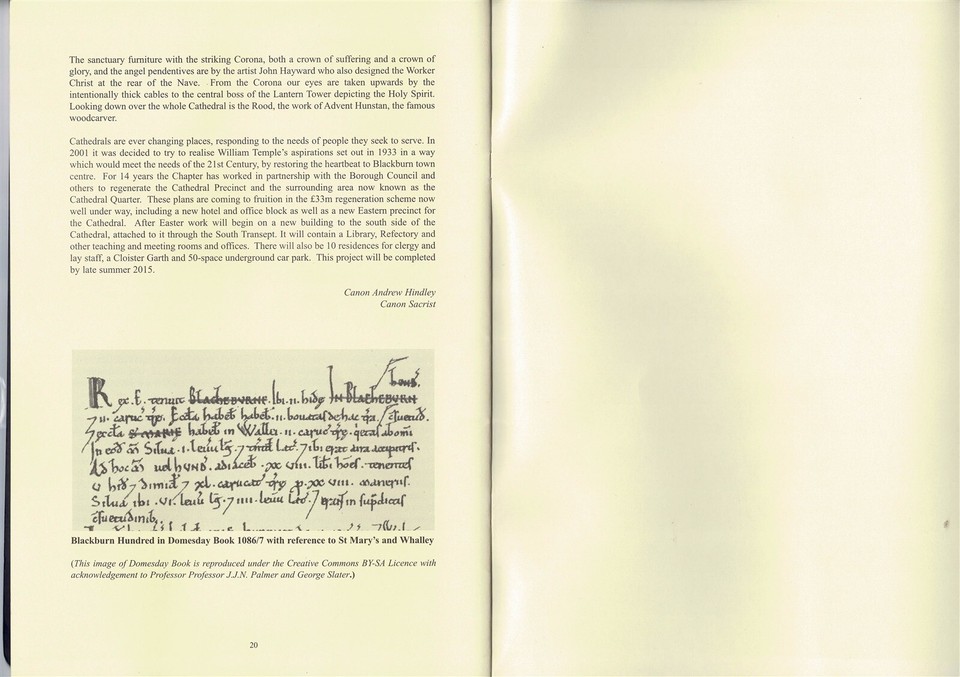 The sanctuary furniture with the striking Corona, both a crown of suffering and a crown of
glory, and the angel pendentives are by the artist John Hayward who also designed the Worker
Christ at the rear of the Nave. From the Corona our eyes are taken upwards by the
intentionally thick cables to the central boss of the Lantern Tower depicting the Holy Spirit.
Looking down over the whole Cathedral is the Rood, the work of Advent Hunstan, the famous
woodcarver.
Cathedrals are ever changing places, responding to the needs of people they seek to serve. In
2001 it was decided to try to realise William Temple's aspirations set out in 1933 in a way
which would meet the needs of the 21st Century, by restoring the heartbeat to Blackburn town
centre. For 14 years the Chapter has worked in partnership with the Borough Council and
others to regenerate the Cathedral Precinct and the surrounding area now known as the
Cathedral Quarter. These plans are coming to fruition in the £33m regeneration scheme now
well under way, including a new hotel and office block as well as a new Eastern precinct for
the Cathedral. After Easter work will begin on a new building to the south side of the
Cathedral, attached to it through the South Transept. It will contain a Library, Refectory and
other teaching and meeting rooms and offices. There will also be 10 residences for clergy and
lay staff, a Cloister Garth and 50-space underground car park. This project will be completed
by late summer 2015.
Canon Andrew Hindley
Canon Sacrist
Rex E. tenuit BLACHEBURNE. Ibi .ii. hidę IN BLACHEBURN
habet in Wallei .ii. caruc
Silua .i. leuu
Ad hoc uel HUND. adiaceb .xx viii. libi
.xl. carucat
Silua ibi .vi. leuu .iiii. leuu
Blackburn Hundred in Domesday Book 1086/7 with reference to St Mary's and Whalley
(This image of Domesday Book is reproduced under the Creative Commons BY-SA Licence with
acknowledgement to Professor Professor J.J.N. Palmer and George Slater.)
20